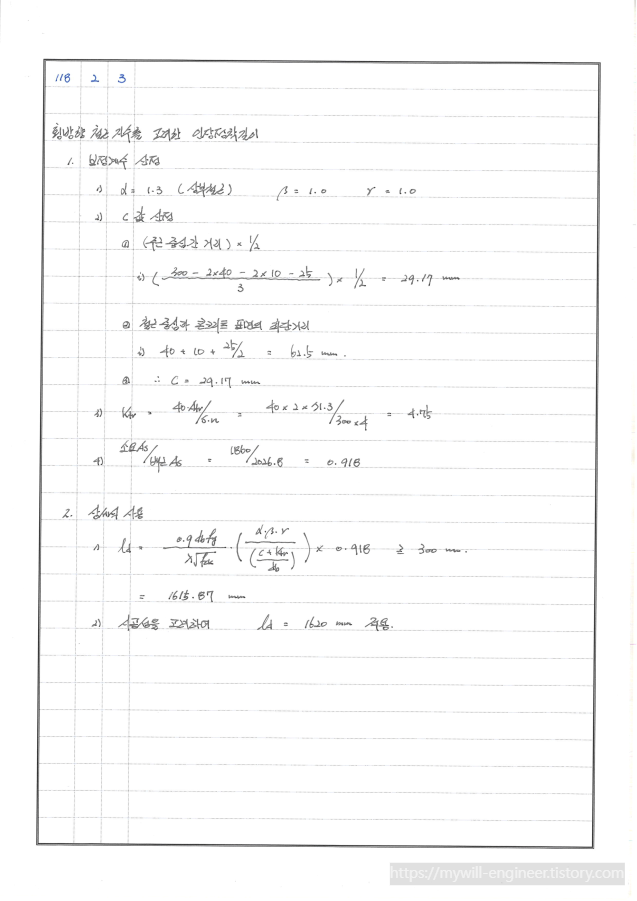 118 2 3
횡방향 철근 지수를 고려한 인장정착길이
1. 보정계수 산정
1) α = 1.3 (상부철근) β = 1.0 γ = 1.0
2) C 값 산정
① (주근 중심간 거리) × 1/2
i) ( (300 - 2×40 - 2×10 - 25) / 3 ) × 1/2 = 29.17 mm
② 철근 중심과 콘크리트 표면의 최단거리
i) 40 + 10 + 25/2 = 62.5 mm.
③ ∴ C = 29.17 mm
3) Ktr = 40Atr/s.n = 40 × 2 × 71.3/300×4 = 4.75
4) 소요As/배근As = 1860/2026.8 = 0.918
2. 상세식 사용
1) ld = 0.9 db fy / λ√fck · ( α.β.γ / ( (C + Ktr) / db ) ) × 0.918 ≥ 300 mm.
= 1615.87 mm
2) 시공성을 고려하여 ld = 1620 mm 적용.
https://mywill-engineer.tistory.com